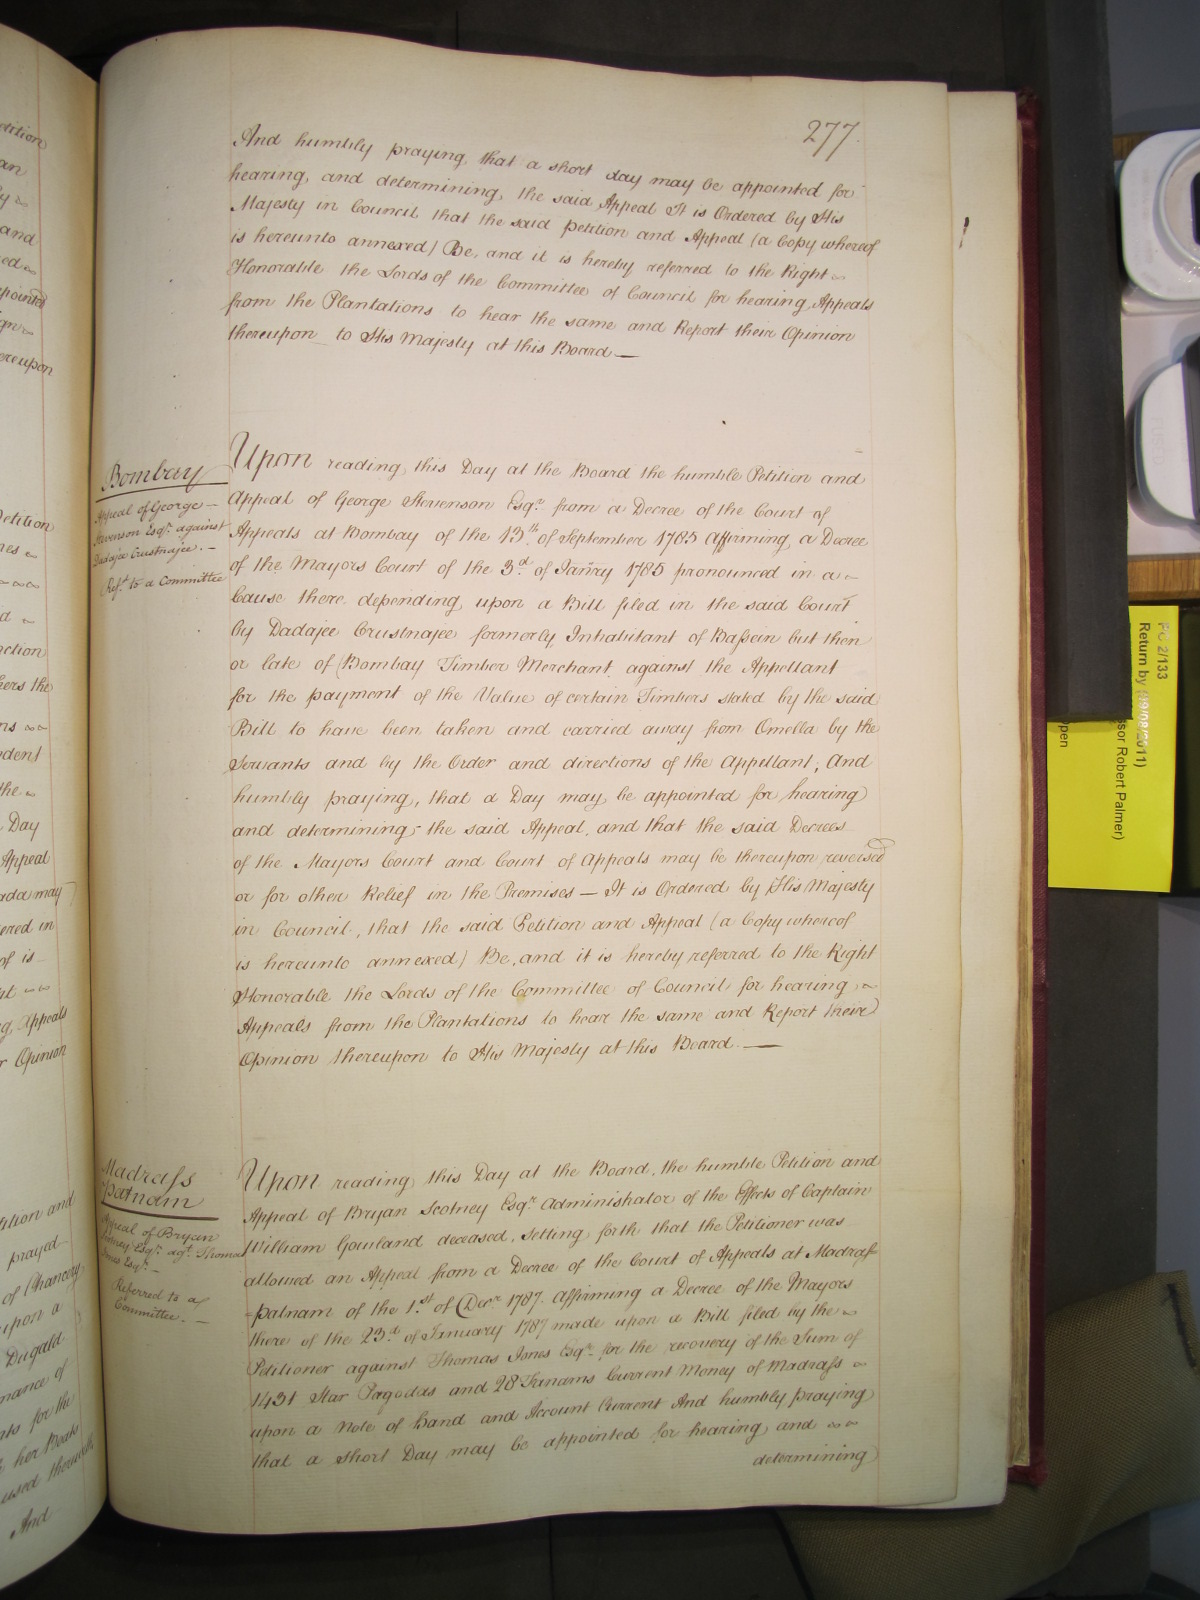 277.
And humbly praying, that a short day may be appointed for
hearing, and determining, the said Appeal It is Ordered by His
Majesty in Council that the said petition and Appeal (a Copy whereof
is hereunto annexed) Be, and it is hereby referred to the Right
Honorable the Lords of the Committee of Council for hearing Appeals
from the Plantations to hear the same and Report their Opinion
thereupon to His Majesty at this Board —
Bombay
Appeal of George —
Stevenson Esqr. against
Dadajee Crustnajee. —
Refd. to a Committee
Upon reading this Day at the Board the humble Petition and
Appeal of George Stevenson Esqr. from a Decree of the Court of
Appeals at Bombay of the 13th. of September 1785 affirming a Decree
of the Mayors Court of the 3d. of Janry 1785 pronounced in a
Cause there depending upon a Bill filed in the said Court
by Dadajee Crustnajee formerly Inhabitant of Bassein but then
or late of Bombay Timber Merchant against the Appellant
for the payment of the Value of certain Timbers stated by the said
Bill to have been taken and carried away from Omella by the
Servants and by the Order and directions of the Appellant, And
humbly praying, that a Day may be appointed for hearing
and determining the said Appeal, and that the said Decrees
of the Mayors Court and Court of Appeals may be thereupon reversed
or for other Relief in the Premises — It is Ordered by His Majesty
in Council, that the said Petition and Appeal (a Copy whereof
is hereunto annexed) Be, and it is hereby referred to the Right
Honorable the Lords of the Committee of Council for hearing
Appeals from the Plantations to hear the same and Report their
Opinion thereupon to His Majesty at this Board. —
Madrass
patnam
Appeal of Bryan
Scotney Esqr. agt. Thomas
Jones Esqr. —
Referred to a
Committee. —
Upon reading this Day at the Board, the humble Petition and
Appeal of Bryan Scotney Esqr. Administrator of the Effects of Captain
William Gowland deceased, setting forth that the Petitioner was
allowed an Appeal from a Decree of the Court of Appeals at Madrass
=patnam of the 1st. of Decr. 1787. affirming a Decree of the Mayors
there of the 23d. of January 1787 made upon a Bill filed by the
Petitioner against Thomas Jones Esqr. for the recovery of the Sum of
1431 Star Pagodas and 28 Fanams Current Money of Madrass
upon a Note of hand and Account Current And humbly praying
that a short Day may be appointed for hearing and
determining
PC 2/133
Return by (09/08/2011)
ssor Robert Palmer)